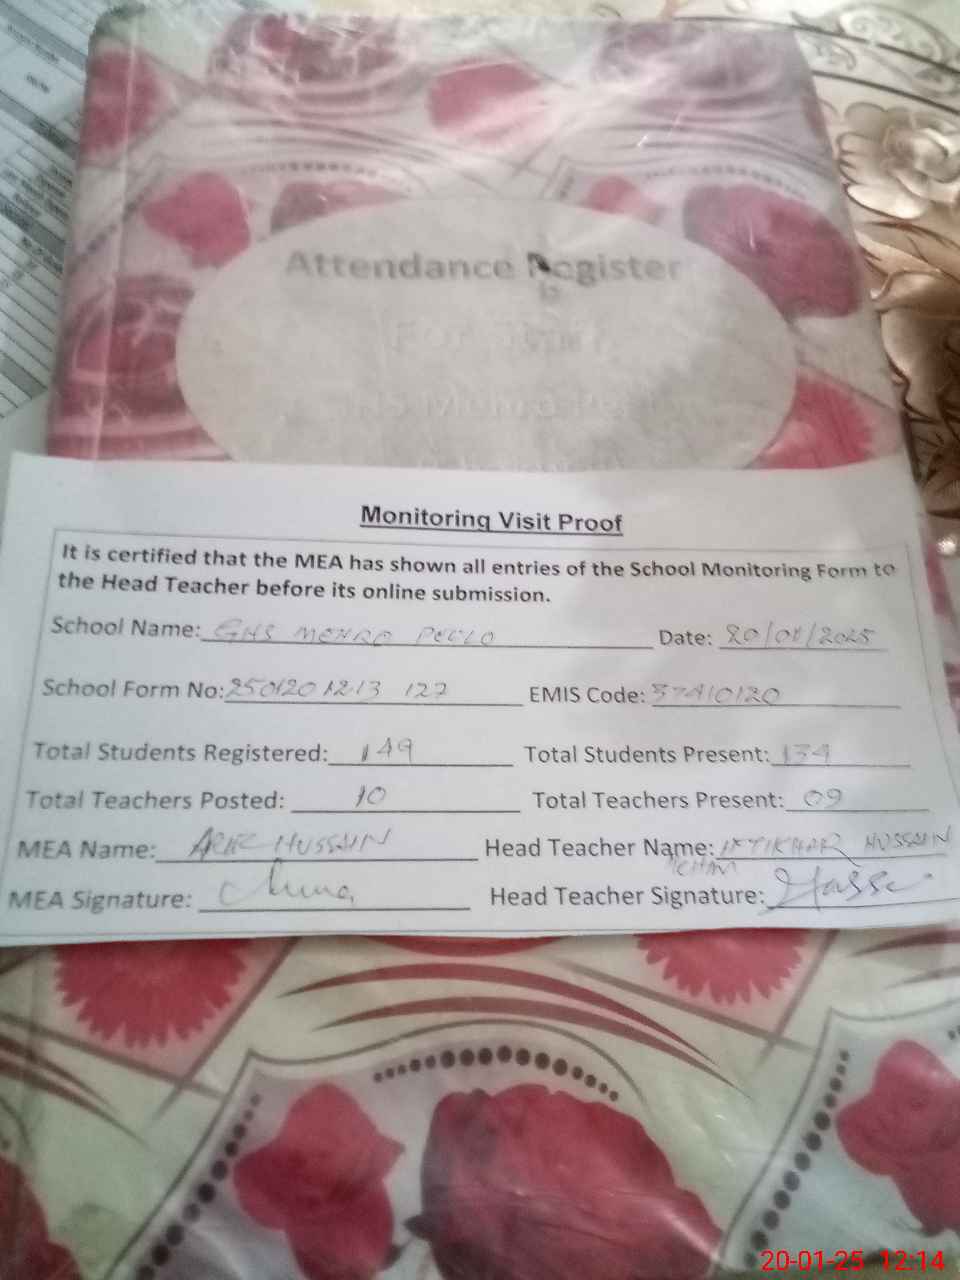 Attendance Register
For Staff
Monitoring Visit Proof
It is certified that the MEA has shown all entries of the School Monitoring Form to
the Head Teacher before its online submission.
School Name: GHS MEHRO PEELO Date: 20/01/2025
School Form No: 250120 1213 127 EMIS Code: 37410120
Total Students Registered: 149 Total Students Present: 134
Total Teachers Posted: 10 Total Teachers Present: 09
MEA Name: HUSSAIN Head Teacher Name: IFTIKHAR HUSSAIN
MEA Signature: Head Teacher Signature:
20-01-25 12:14